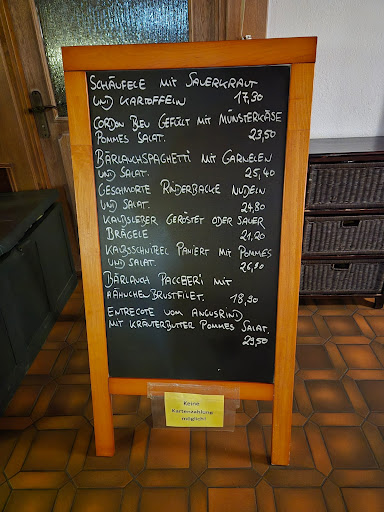 SCHÄUFELE MIT SAUERKRAUT
UND KARTOFFELN 17,30
CORDON BLEU GEFÜLT MIT MUNSTERKÄSE
POMMES SALAT. 23,50
BÄRLAUCHSPAGHETTI MIT GARNELEN
UND SALAT. 25,40
GESCHMORTE RINDERBACKE NUDELN
UND SALAT. 24,80
KALBSLEBER GERÖSTET ODER SAUER
BRÄGELE 21,20
KALBSSCHNITZEL PANIERT MIT POMMES
UND SALAT. 26,50
BÄRLAUCH PACCHERI MIT
HÄHNCHENBRUSTFILET. 18,90
ENTRECOTE VOM ANGUSRIND
MIT KRÄUTERBUTTER POMMES SALAT.
29,50
Keine
Kartenzahlung
möglich!